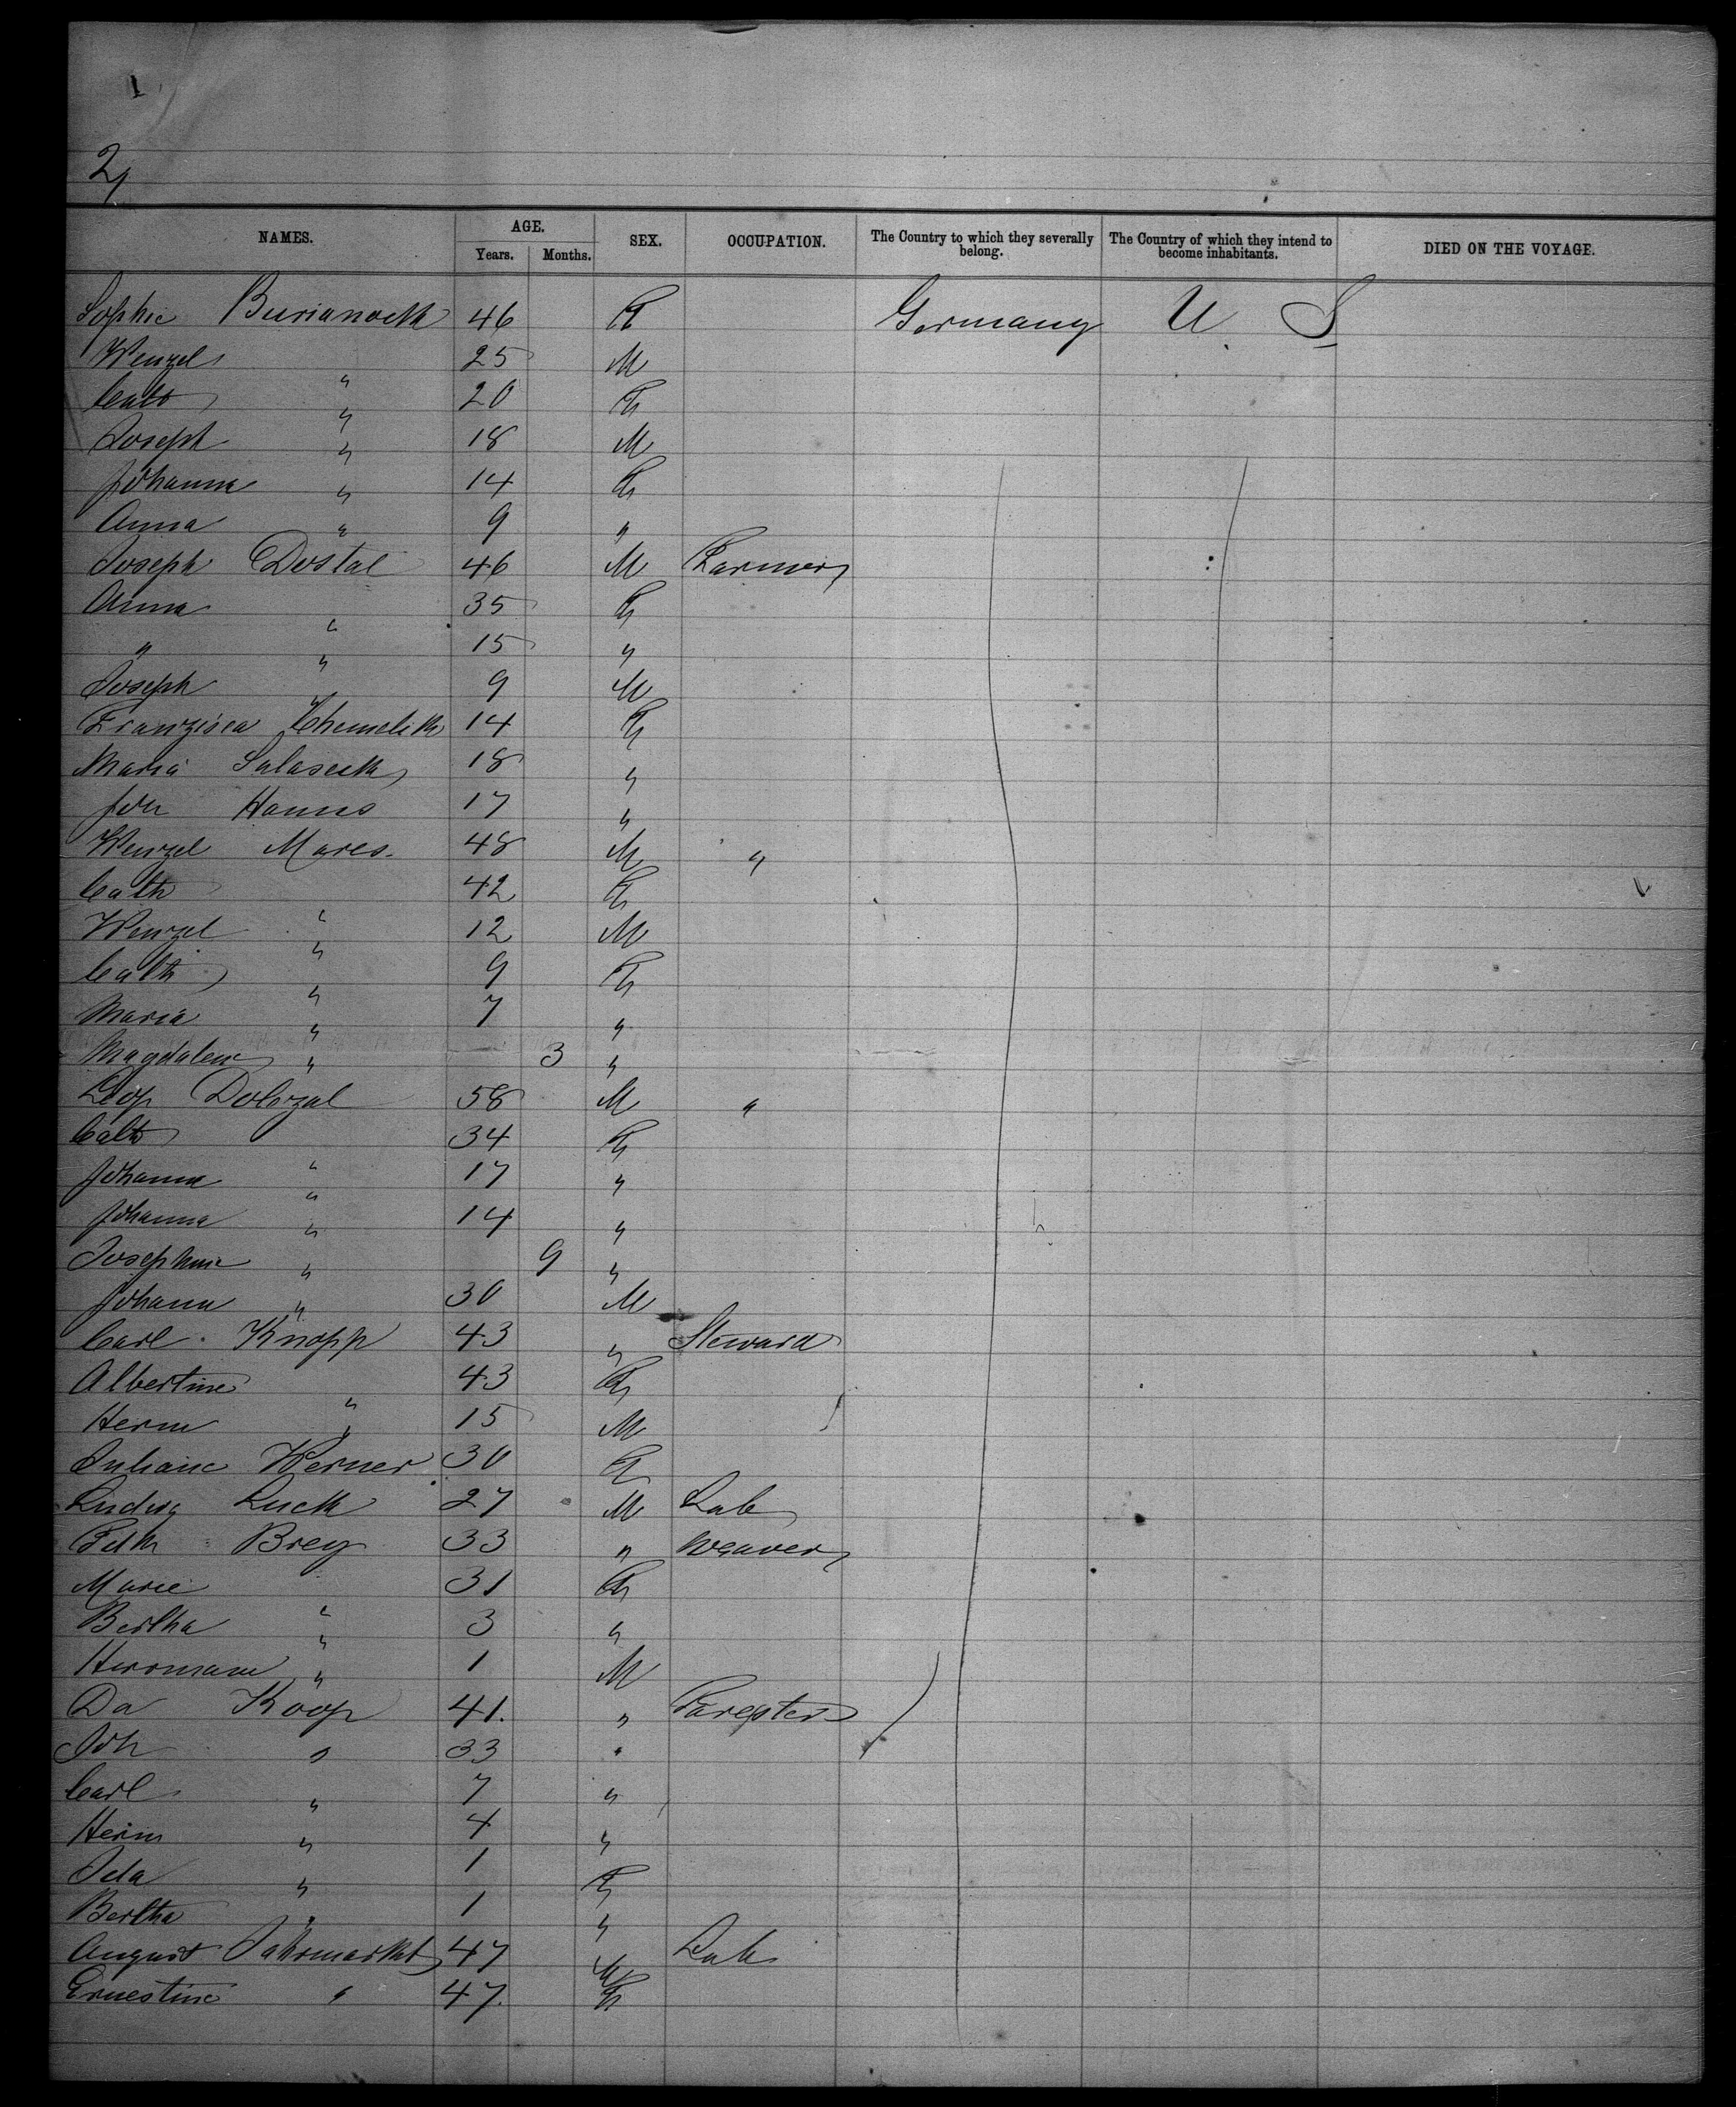 1
2/
NAMES. AGE. SEX. OCCUPATION. The Country to which they severally belong. The Country of which they intend to become inhabitants. DIED ON THE VOYAGE.
Years. Months.
Sophie Burianeck 46 F Germany U S
Wenzel " 25 M
Cath " 20 F
Joseph " 18 M
Johanna " 14 F
Anna " 9 "
Joseph Dostal 46 M Farmer
Anna " 35 F
" " 15 "
Joseph " 9 M
Franzisca Chemelik 14 F
Maria Salaseck 18 "
Joh Hanns 17 "
Wenzel Mares 48 M "
Cath " 42 F
Wenzel " 12 M
Cath " 9 F
Maria " 7 "
Magdalene " 3 "
Leop Dolezal 58 M "
Cath " 34 F
Johanna " 17 "
Johanna " 14 "
Josephine " 9 "
Johann " 30 M
Carl Knopp 43 " Steward
Albertine " 43 F
Herm " 15 M
Juliane Werner 30 F
Ludwig Luck 27 M Lab
Brey 33 " Weaver
Marie " 31 F
Bertha " 3 "
Herrmann " 1 M
Da Koop 41. " Forester
Joh " 33 "
Carl " 7 "
Herm " 4 "
Ida " 1 F
Bertha " 1 "
August Jahrmarkt 47 M Lab
Ernestine " 47. F